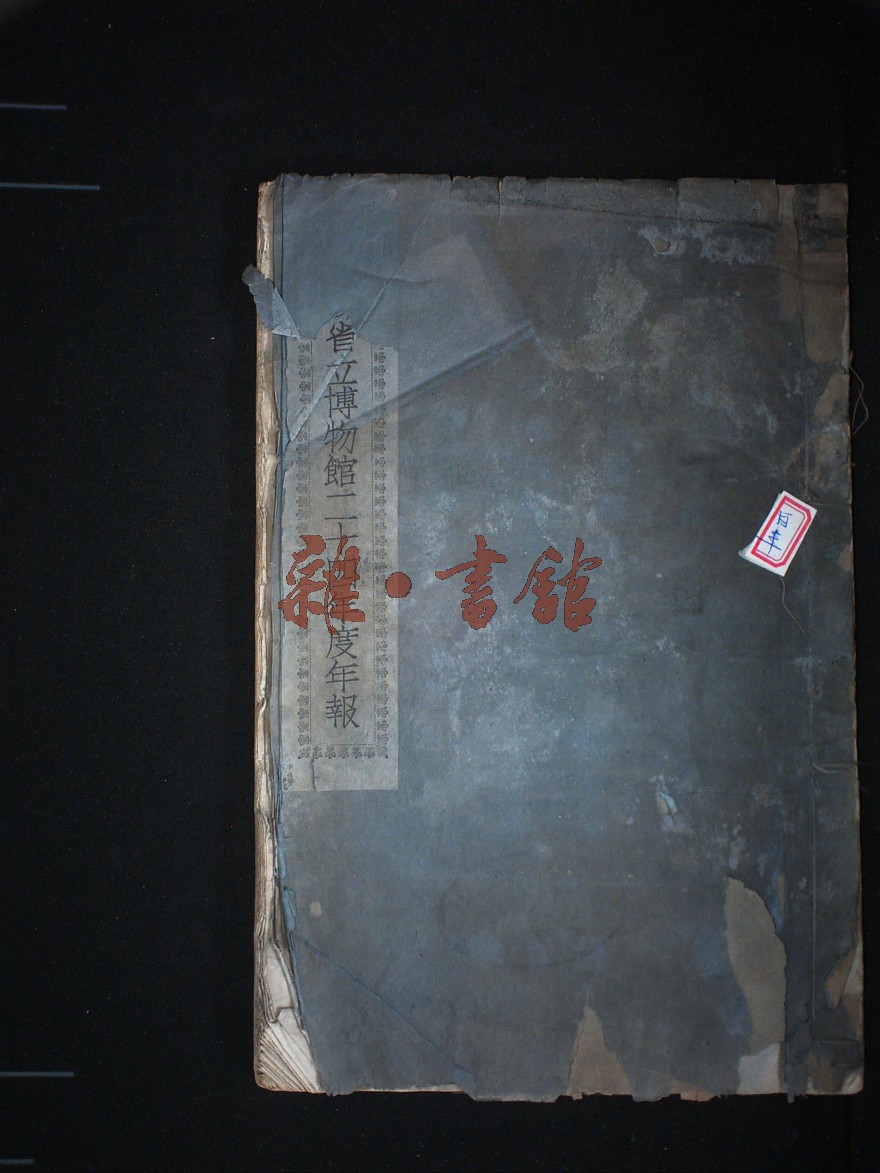 省立博物館二十四年度年報
雜·書館
百年